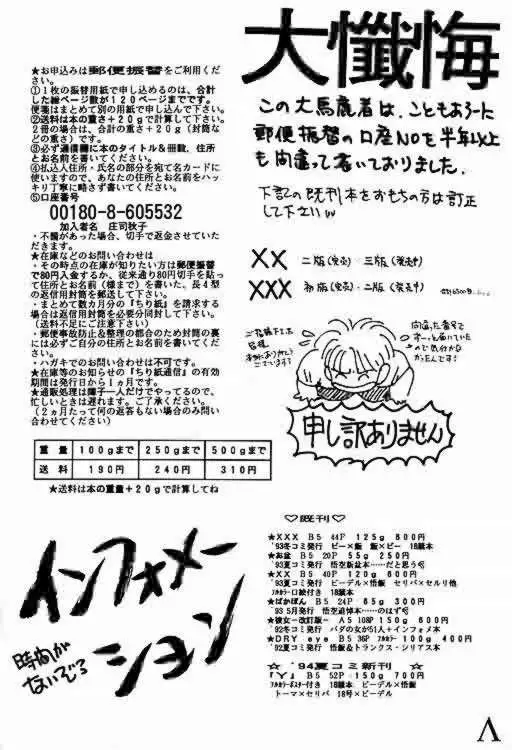 ★お申込みは郵便振替をご利用くだ
さい。
①1枚の振替用紙で申し込めるのは、合計
した総ページ数が120ページまでです。
便箋はまとめて別の用紙で申し込んで下さい。
②送料は本の重さ+20gで計算して下さい。
2冊の場合は、合計の重さ+20g(封筒な
どの重さ)です。
③必ず通信欄に本のタイトル&冊数、住所
とお名前を書いてください。
④払込人住所・氏名の部分を宛て名カードに
使いますので、あなたの住所とお名前をハッ
キリ丁寧に略さず書いてください。
⑤口座番号
00180-8-605532
加入者名 庄司秋子
・不備があった場合、切手で返金させていた
だきます。
★在庫などのお問い合わせは
・その時点の在庫が知りたい方は郵便振替
で80円入金するか、従来通り80円切手を貼っ
て住所とお名前(様まで)を書いた、長4型
の返信用封筒を郵送して下さい。
・まとめて数カ月分の『ちり紙』を請求する
場合は返信用封筒を必要分同封して下さい。
(送料不足にご注意下さい)
・郵便事故防止&整理の都合のため封筒の裏
には必ずご自分の住所とお名前を書いてくだ
さい。
・ハガキでのお問い合わせは不可です。
★在庫等のお知らせの『ちり紙通信』の有効
期間は発行日から1ヵ月です。
★通販処理は障子一人だけでやってるので、
忙しいときは遅れます。ご了承ください。
(2ヵ月たって何の返答もない場合のみ問い
合わせてください)
重量 100gまで 250gまで 500gまで
送料 190円 240円 310円
★送料は本の重量+20gで計算してね
インフォメー
ション
時間が
ないぞう
大懺悔
この大馬鹿者は、こともあろーに
郵便振替の口座NOを半年以上
も間違って書いておりました。
下記の既刊本をおもちの方は訂正
して下さい
XX 二版(完売)・三版(発売中)
XXX 初版(完売)・二版(発売中)
ご指摘下さった
皆様
本当にありがとう
ございます!!
間違った番号で
ずーっと届いていた
ので気付かな
かったんです!
申し訳ありません
♡既刊♡
★XXX B5 44P 125g 800円
'93冬コミ発行 ビー×飯 飯×ビー 18禁本
★お盆 B5 20P 55g 250円
'93夏コミ発行 悟空新盆本……だと思う
★XX B5 40P 120g 600円
'93夏コミ発行 ビーデル×悟飯 セリパ×セルリ他
フルカラー口絵付き 18禁本
★ばかぼん B5 24P 65g 300円
'93 5月発行 悟空追悼本……のはず
★彼女-改訂版- A5 108P 150g 600円
'92冬コミ発行 バダの女が51人+インフォメ本
★DRY eye B5 36P フルカラー 100g 400円
'92夏コミ発行 悟飯&トランクス・シリアス本
☆ '94夏コミ新刊 ☆
『Y』 B5 52P 150g 700円
フルカラーポスター付き 18禁本 ビーデル×悟飯
トーマ×セリパ 18号×ビーデル